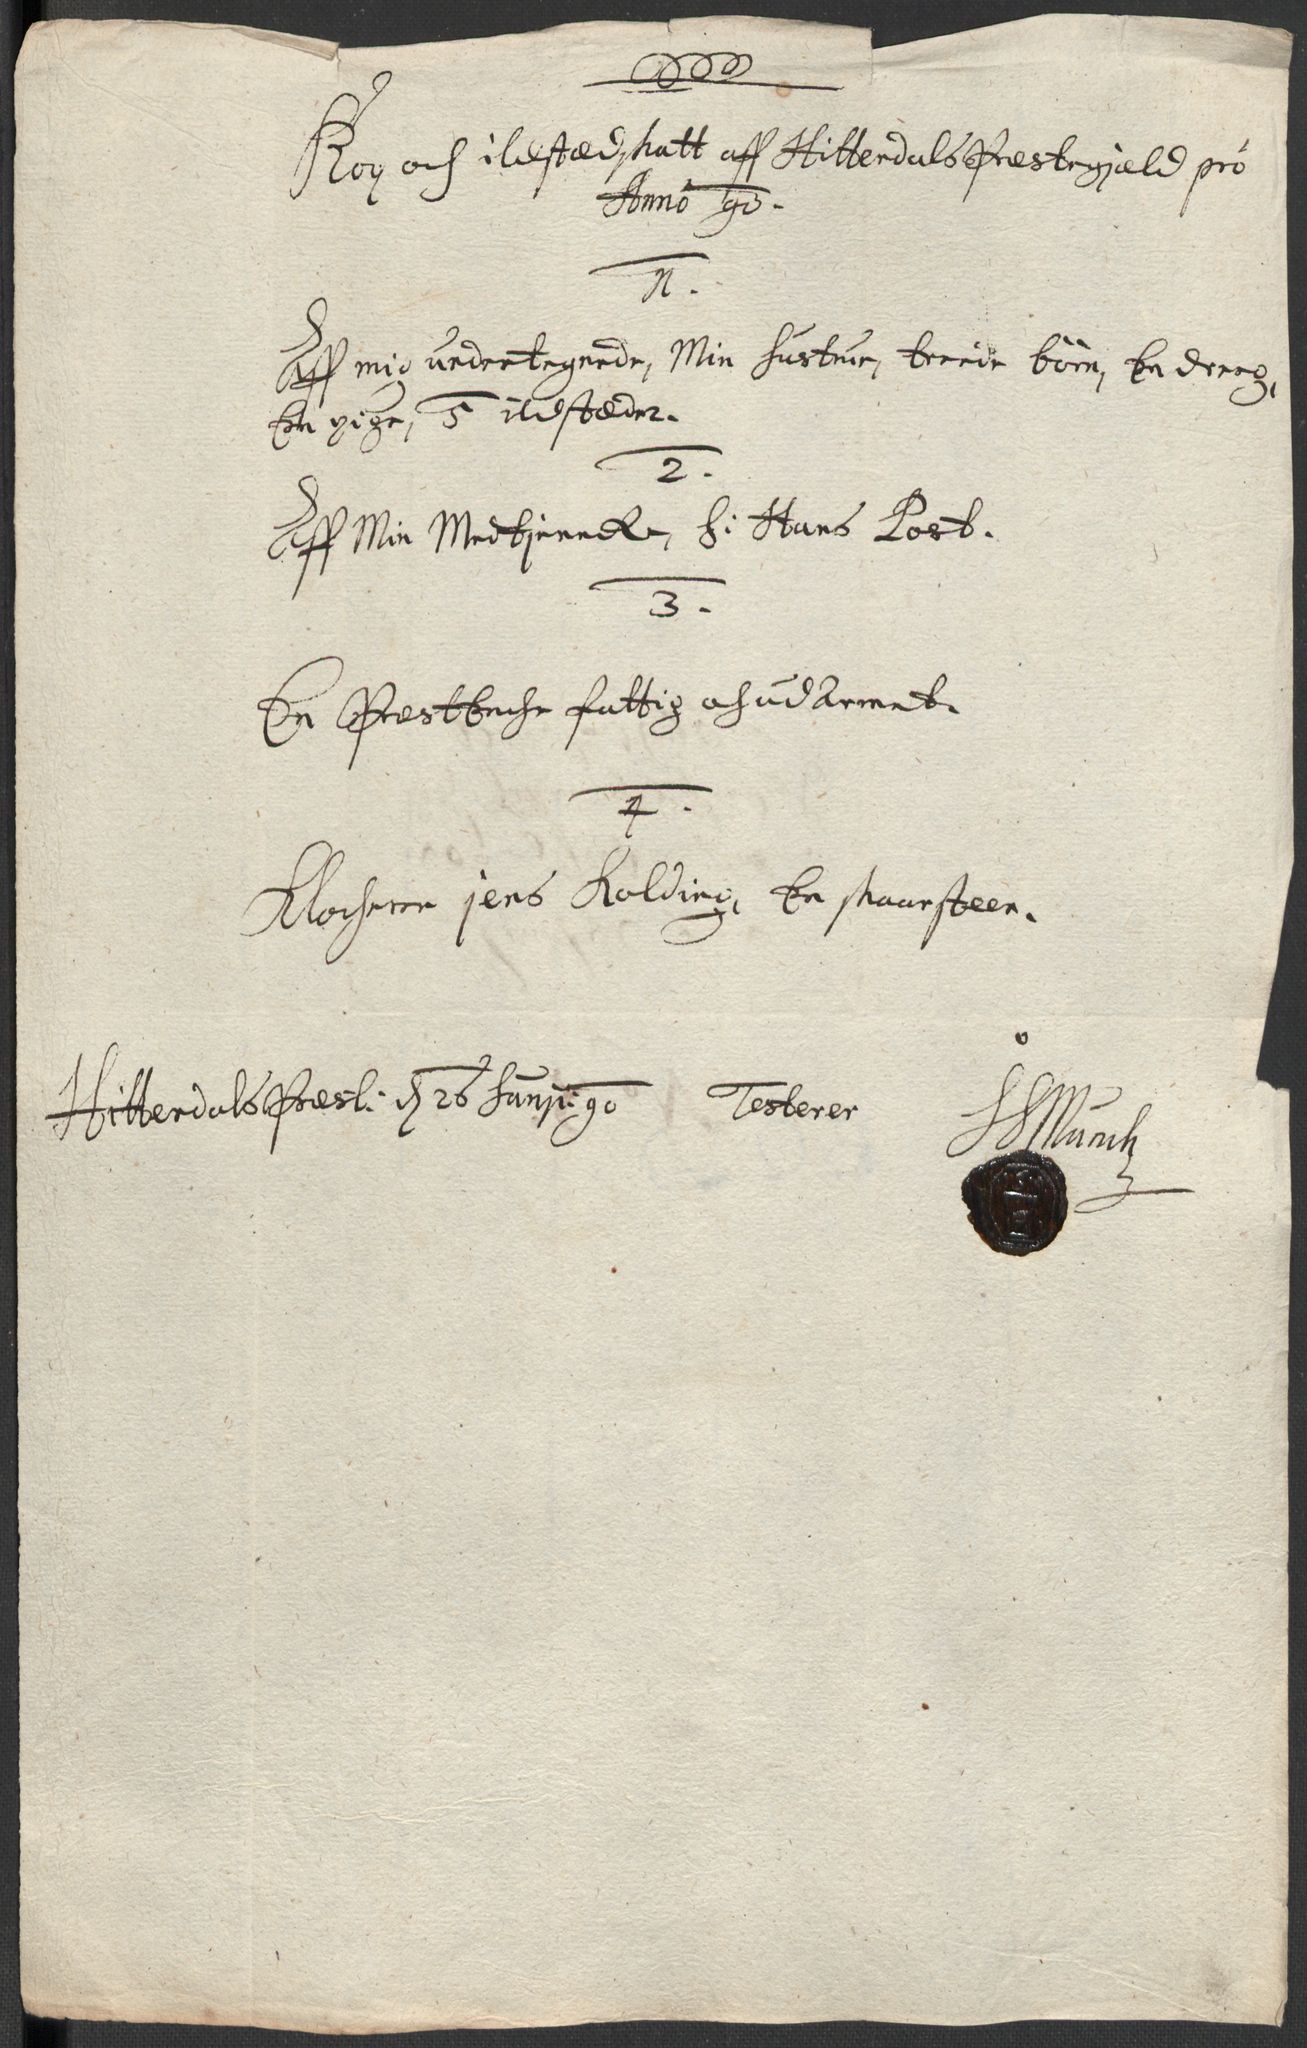 Kop och ildstæd skatt aff Hitterdals Præstegjæld pro
Anno 90.
1.
Aff mig undertegnede, Min hustrue, trende börn, En dreng,
En pige, 5 ildstæder.
2.
Aff Min Medtjener, hr Hans Post.
3.
En Præst Enche fattig och udarmet.
4.
Klocheren jens Kolding, En skaarsteen.
Hitterdals Præstg: d 26 Junij: 90 Testerer
Munch